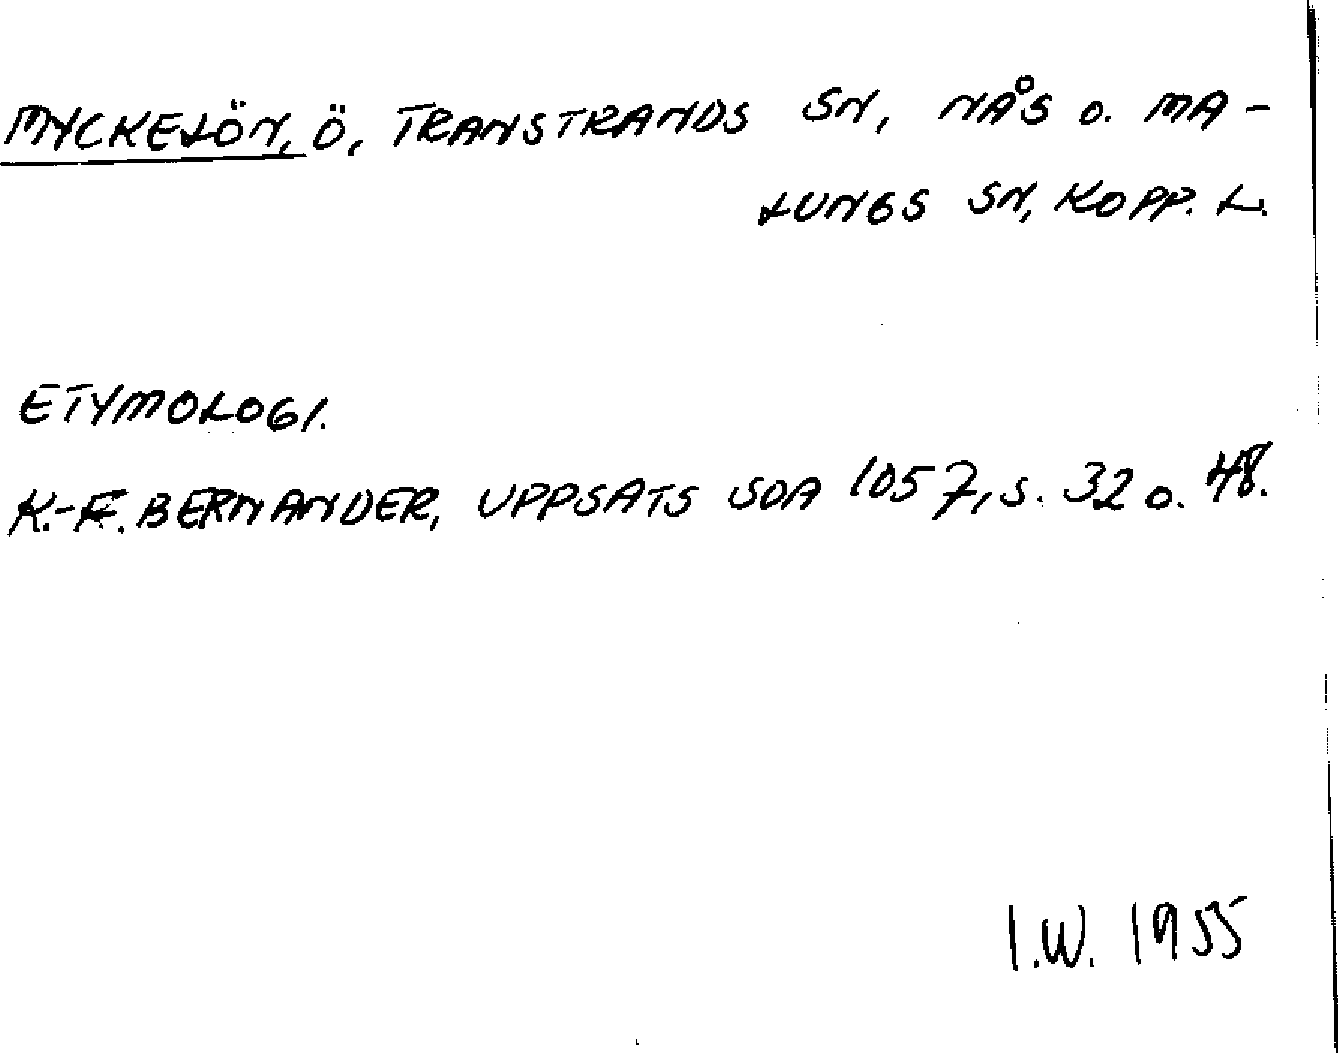 MYCKELÖN, Ö, TRANSTRANDS SN, NÅS O. MA-
LUNGS SN, KOPP. L.
ETYMOLOGI.
K.-E. BERNANDER, UPPSATS SOA 1057, S. 32 O. 48.
I.W. 1955